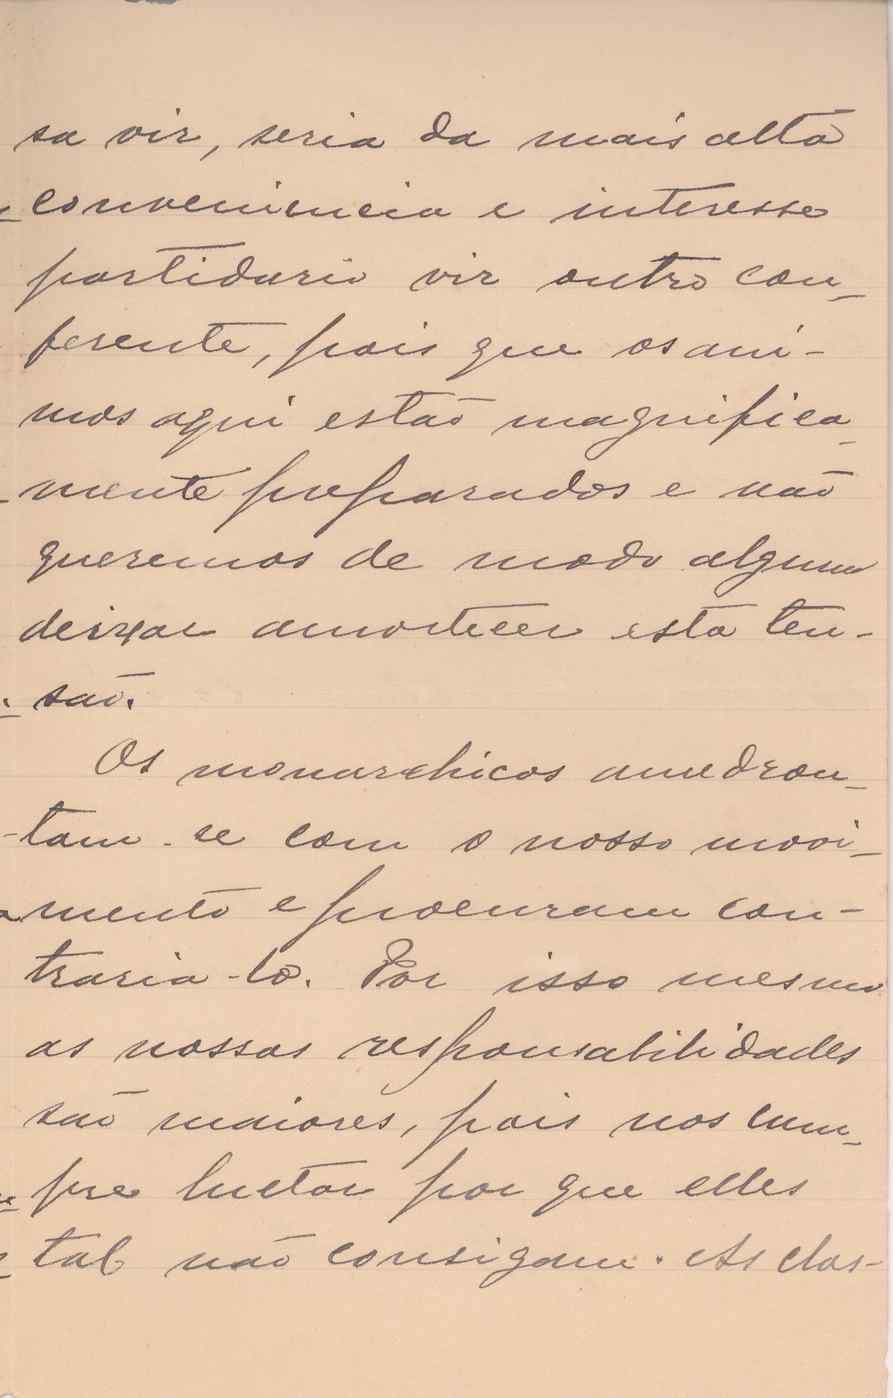 sa vir, seria da mais alta
conveniencia e interesse
partidario vir outro con-
ferente, pois que os ani-
mos aqui estão magnifica-
mente preparados e não
queremos de modo algum
deixar amortecer esta ten-
são.
Os monarchicos amedron-
tam-se com o nosso movi-
mento e procuram con-
traria-lo. Por isso mesmo
as nossas responsabilidades
são maiores, pois nos cum-
pre luctar por que elles
tal não consigam. As clas-